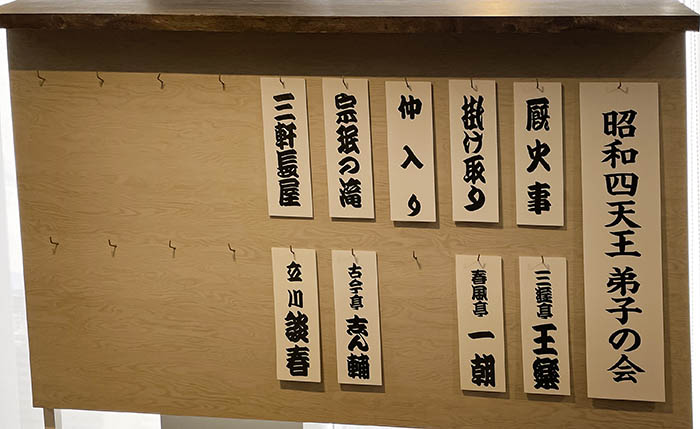 昭和四天王 弟子の会
厩火事
掛け取り
仲入り
宗珉の滝
三軒長屋
三遊亭 王樂
春風亭 一朝
古今亭 志ん輔
立川 談春